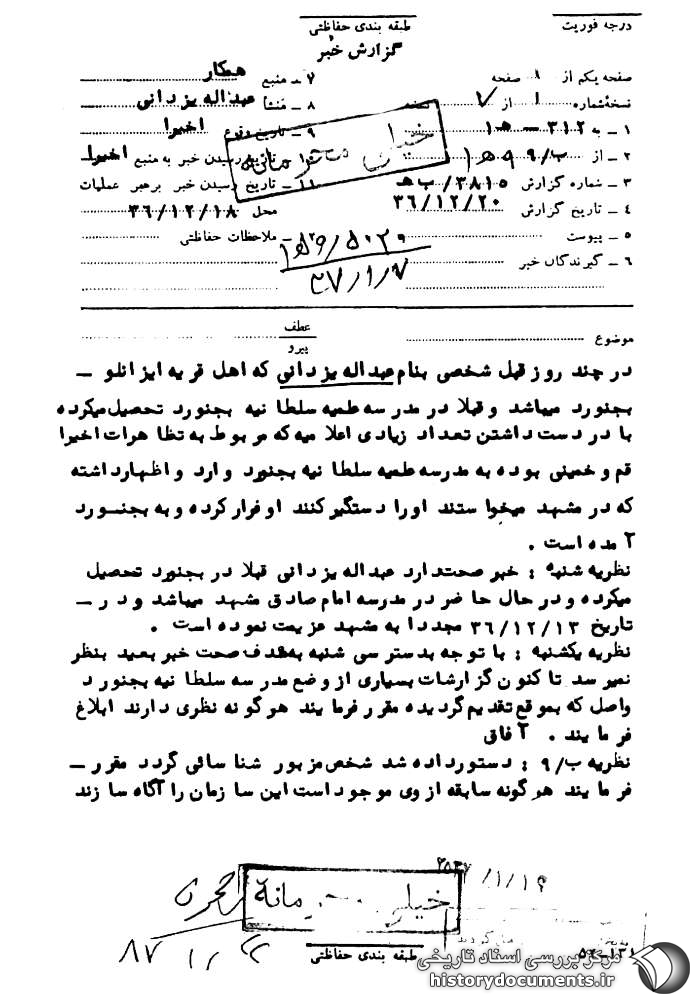 درجه فوریت
طبقه بندی حفاظتی
گزارش خبر
صفحه یکم از ۱ صفحه
۷ ــ منبع همکار
نسخهٔ شماره ۱ از ۷ نسخه
۸ ــ منشأ عبداله یزدانی
۱ ــ به ۳۱۲ ــ ه‍ ۱
۹ ــ تاریخ وقوع اخیرا
۲ ــ از ۹/ب ۹ ه‍ ۱
۱۰ ــ تاریخ رسیدن خبر به منبع اخیرا
۳ ــ شماره گزارش ۳۸۱۵/ب ه‍
۱۱ ــ تاریخ رسیدن خبر برهبر عملیات
۴ ــ تاریخ گزارش ۳۶/۱۲/۲۰
محل ۳۶/۱۲/۱۸
خیلی محرمانه
۵ ــ پیوست
ملاحظات حفاظتی
۶ ــ گیرندگان خبر
۳۷/۱/۷
موضوع
عطف
پیرو
در چند روز قبل شخصی بنام عبداله یزدانی که اهل قریه ایزانلو ــ
بجنورد میباشد و قبلا در مدرسه علمیه سلطانیه بجنورد تحصیل میکرده
با در دست داشتن تعداد زیادی اعلامیه که مربوط به تظاهرات اخیرا
قم و خمینی بوده به مدرسه علمیه سلطانیه بجنورد وارد و اظهار داشته
که در مشهد میخواستند او را دستگیر کنند او فرار کرده و به بجنورد
آمده است .
نظریه شنبه : خبر صحت دارد عبداله یزدانی قبلا در بجنورد تحصیل
میکرده و در حال حاضر در مدرسه امام صادق مشهد میباشد و در ــ
تاریخ ۳۶/۱۲/۱۳ مجددا به مشهد عزیمت نموده است .
نظریه یکشنبه : با توجه بدسترسی شنبه به هدف صحت خبر بعید بنظر
نمیرسد تاکنون گزارشات بسیاری از وضع مدرسه سلطانیه بجنورد
واصل که بموقع تقدیم گردیده مقرر فرمایند هرگونه نظری دارند ابلاغ
فرمایند . آفاق
نظریه ۹/ب : دستور داده شد شخص مزبور شناسائی گردد مقرر ــ
فرمایند هرگونه سابقه از وی موجود است این سازمان را آگاه سازند
۲۵۳۷/۱/۱۹
خیلی محرمانه
طبقه بندی حفاظتی
مرکز بررسی اسناد تاریخی
historydocuments.ir